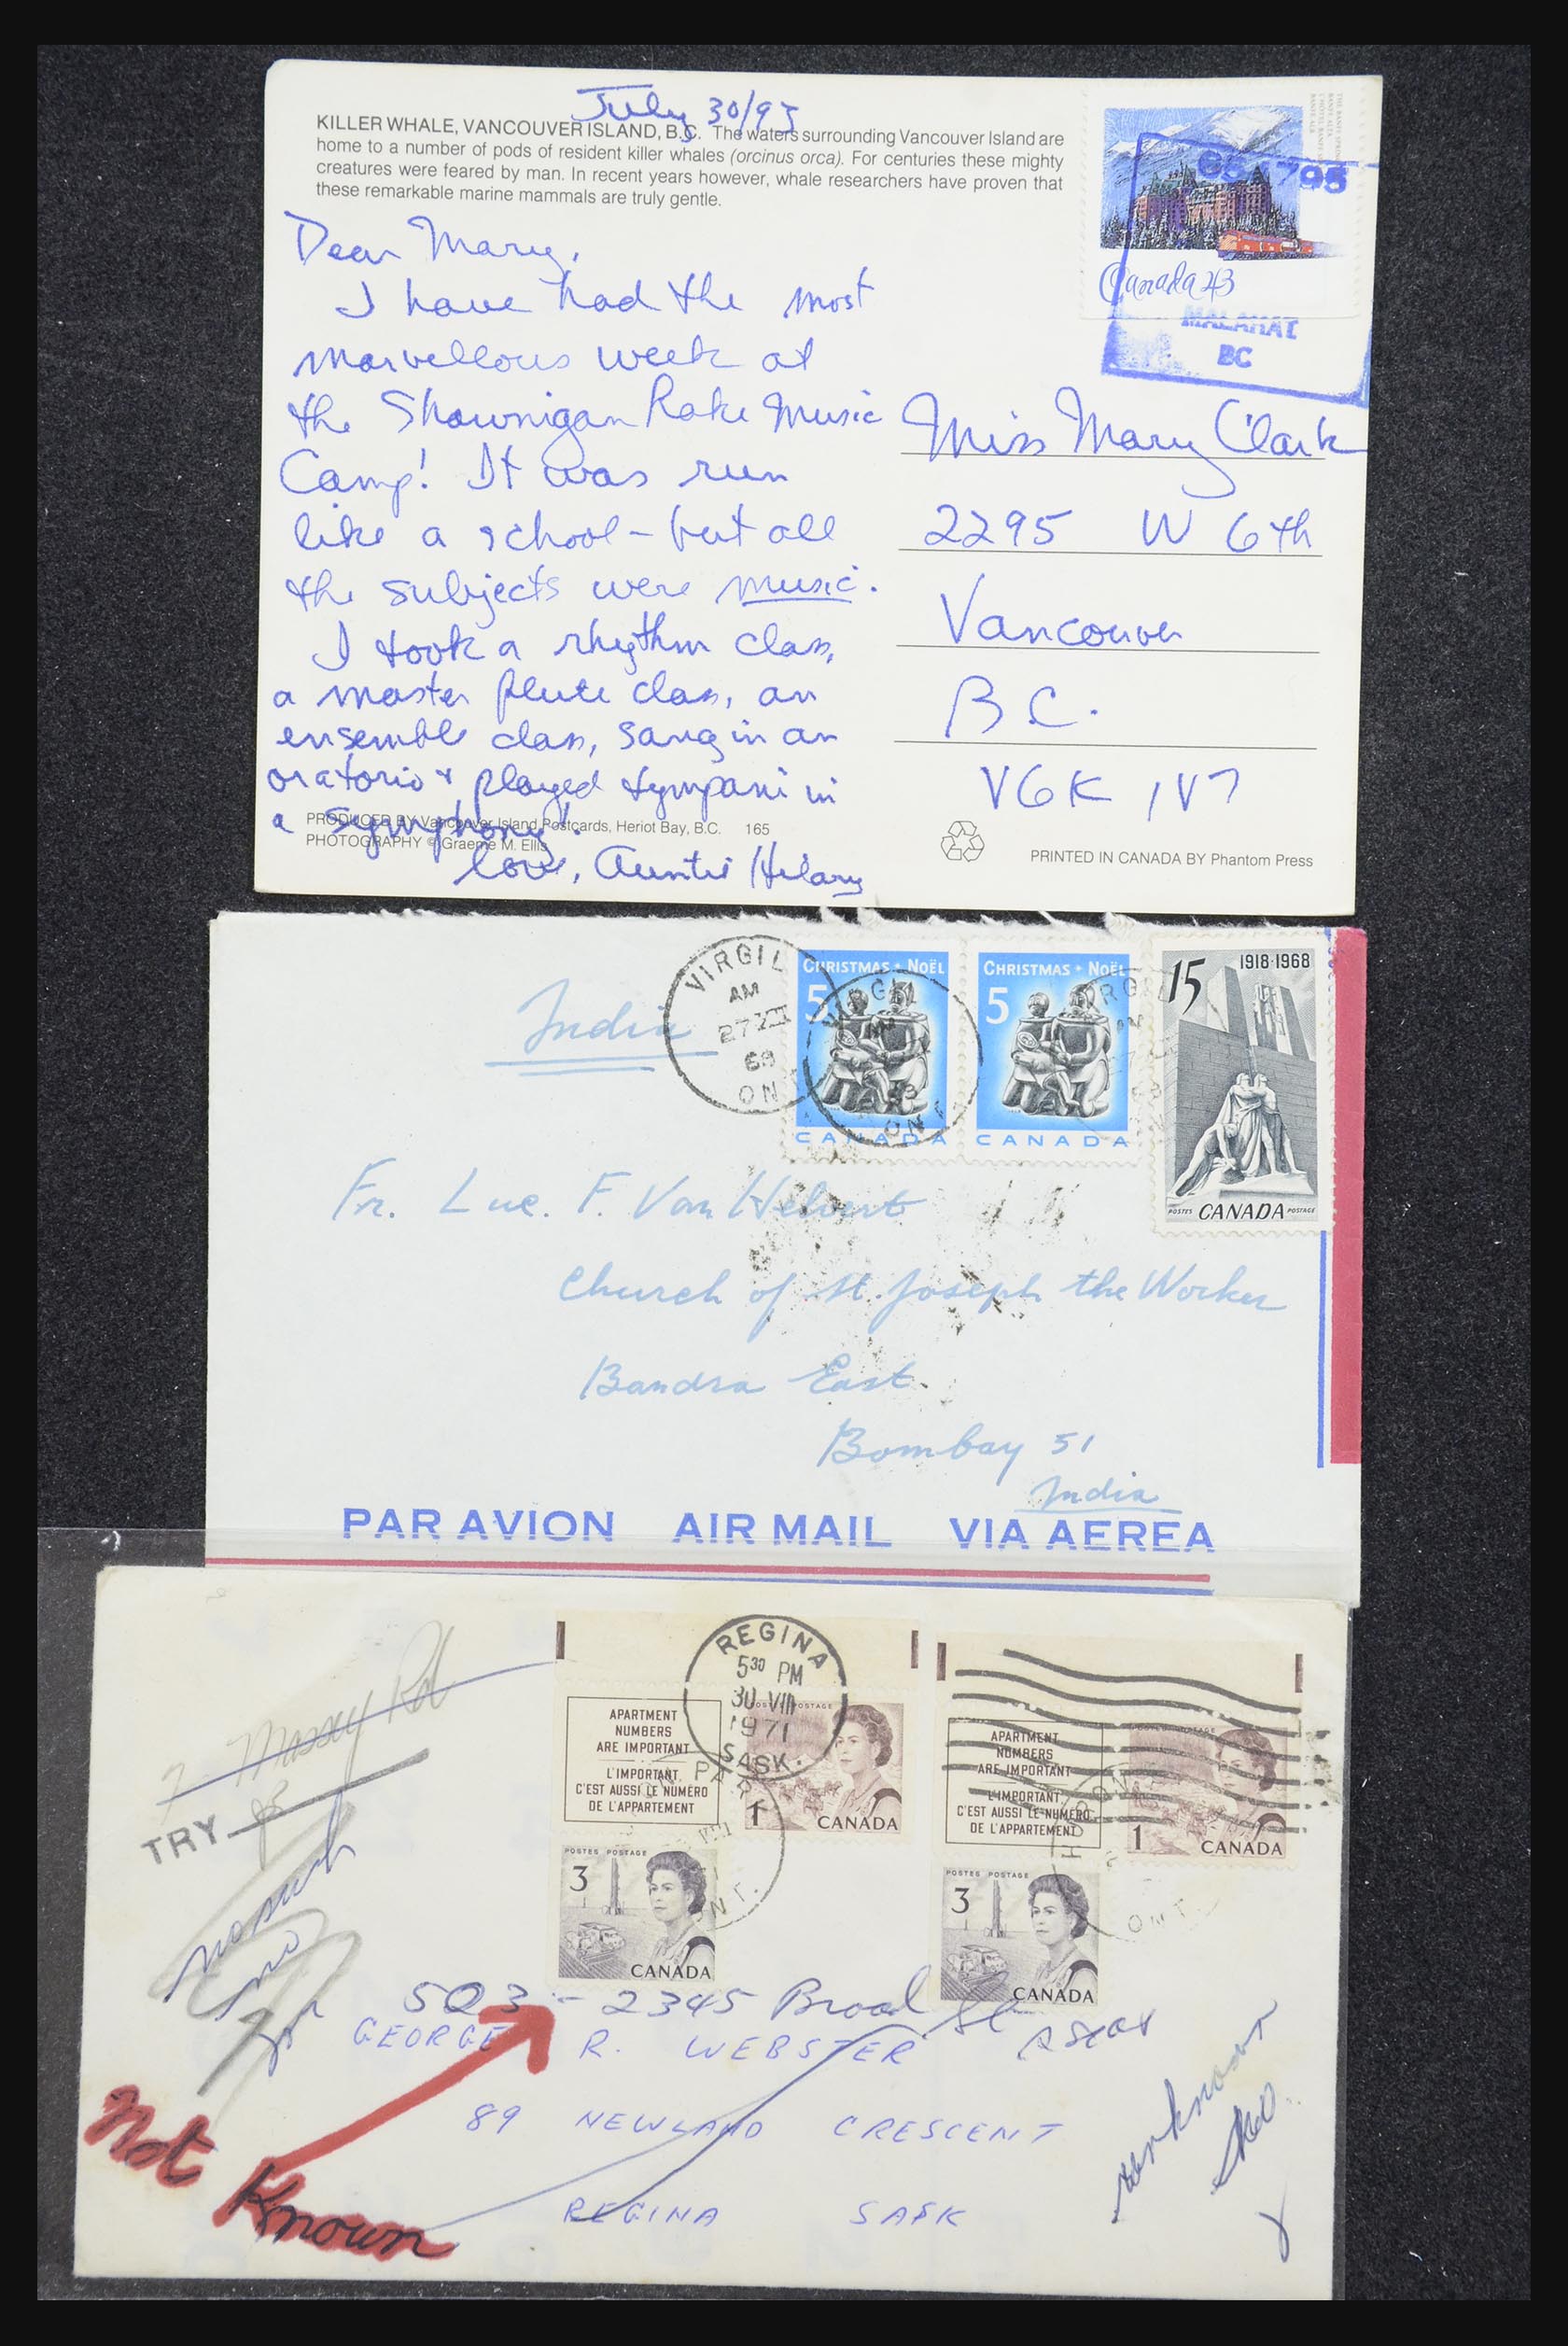 July 30/95
KILLER WHALE, VANCOUVER ISLAND, B.C. The waters surrounding Vancouver Island are
home to a number of pods of resident killer whales (orcinus orca). For centuries these mighty
creatures were feared by man. In recent years however, whale researchers have proven that
these remarkable marine mammals are truly gentle.
Canada 43
MALAHAT
BC
Dear Mary,
I have had the most
marvellous week at
the Shawnigan Lake Music
Camp! It was run
like a school – but all
the subjects were music.
I took a rhythm class,
a master flute class, an
ensemble class, sang in an
oratorio + played tympani in
a symphony!
love, Auntie Hilary
Miss Mary Clark
2295 W 6th
Vancouver
B.C.
V6K 1V7
PRODUCED BY Vancouver Island Postcards, Heriot Bay, B.C. 165
PHOTOGRAPHY © Graeme M. Ellis
PRINTED IN CANADA BY Phantom Press
India
VIRGIL
AM
27 VII
68
ONT
CHRISTMAS • NOËL
5
CANADA
CHRISTMAS • NOËL
5
CANADA
15
1918·1968
POSTES CANADA POSTAGE
Fr. Luc. F. Van Helvert
Church of St. Joseph the Worker
Bandra East.
Bombay 51
India
PAR AVION AIR MAIL VIA AEREA
7 Massey Rd
TRY
no such
no
REGINA
5 30 PM
30 VIII
1971
SASK.
APARTMENT
NUMBERS
ARE IMPORTANT
L'IMPORTANT,
C'EST AUSSI LE NUMÉRO
DE L'APPARTEMENT
1
CANADA
POSTES POSTAGE
3
CANADA
APARTMENT
NUMBERS
ARE IMPORTANT
L'IMPORTANT,
C'EST AUSSI LE NUMÉRO
DE L'APPARTEMENT
POSTES POSTAGE
1
CANADA
POSTES POSTAGE
3
CANADA
ONT.
503 - 2345 Broad St
GEORGE R. WEBSTER
89 NEWLAND CRESCENT
REGINA SASK
Not
Known
unknown